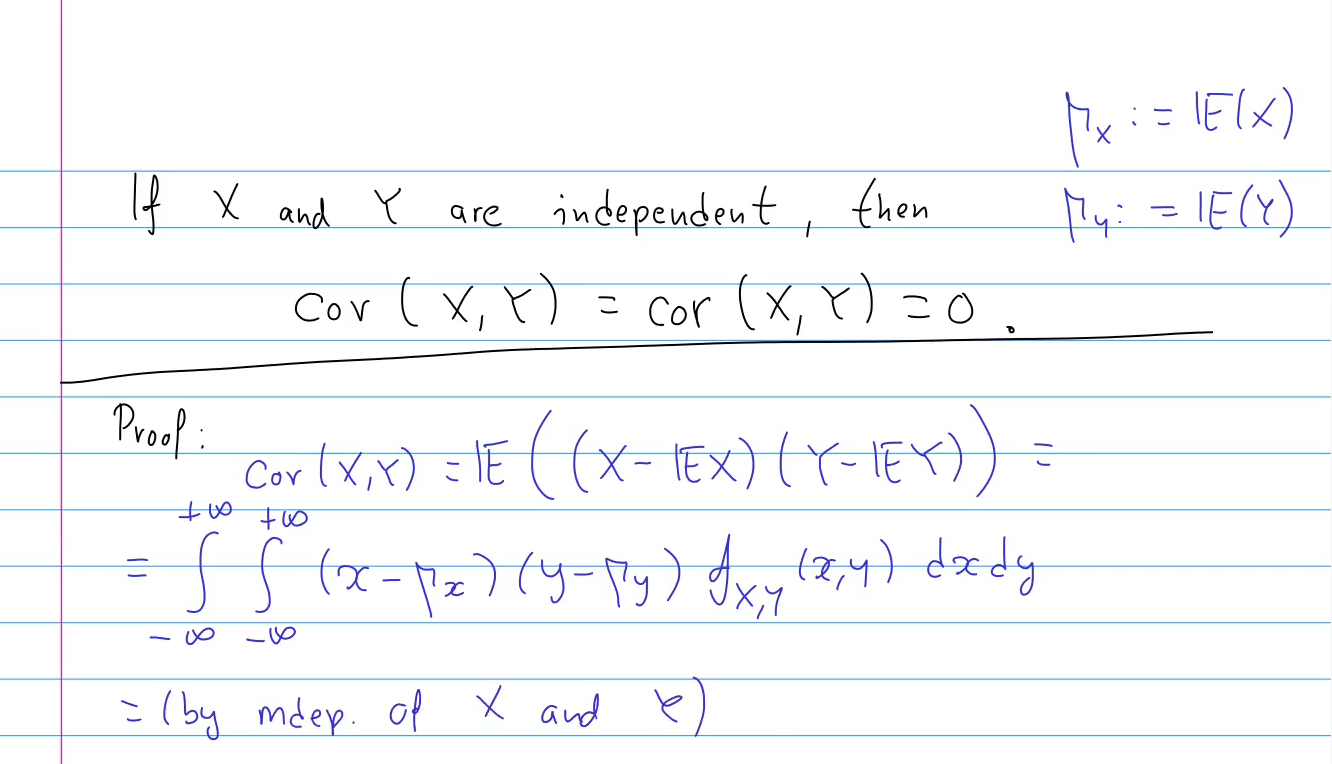 μ_X := 𝔼(X)
If X and Y are independent, then μ_Y := 𝔼(Y)
Cov (X, Y) = cor (X, Y) = 0.
Proof:
Cov (X,Y) = 𝔼 ( (X − 𝔼X) (Y − 𝔼Y) ) =
= ∫_{−∞}^{+∞} ∫_{−∞}^{+∞} (x − μ_x) (y − μ_y) f_{X,Y} (x,y) dx dy
= (by indep. of X and Y)